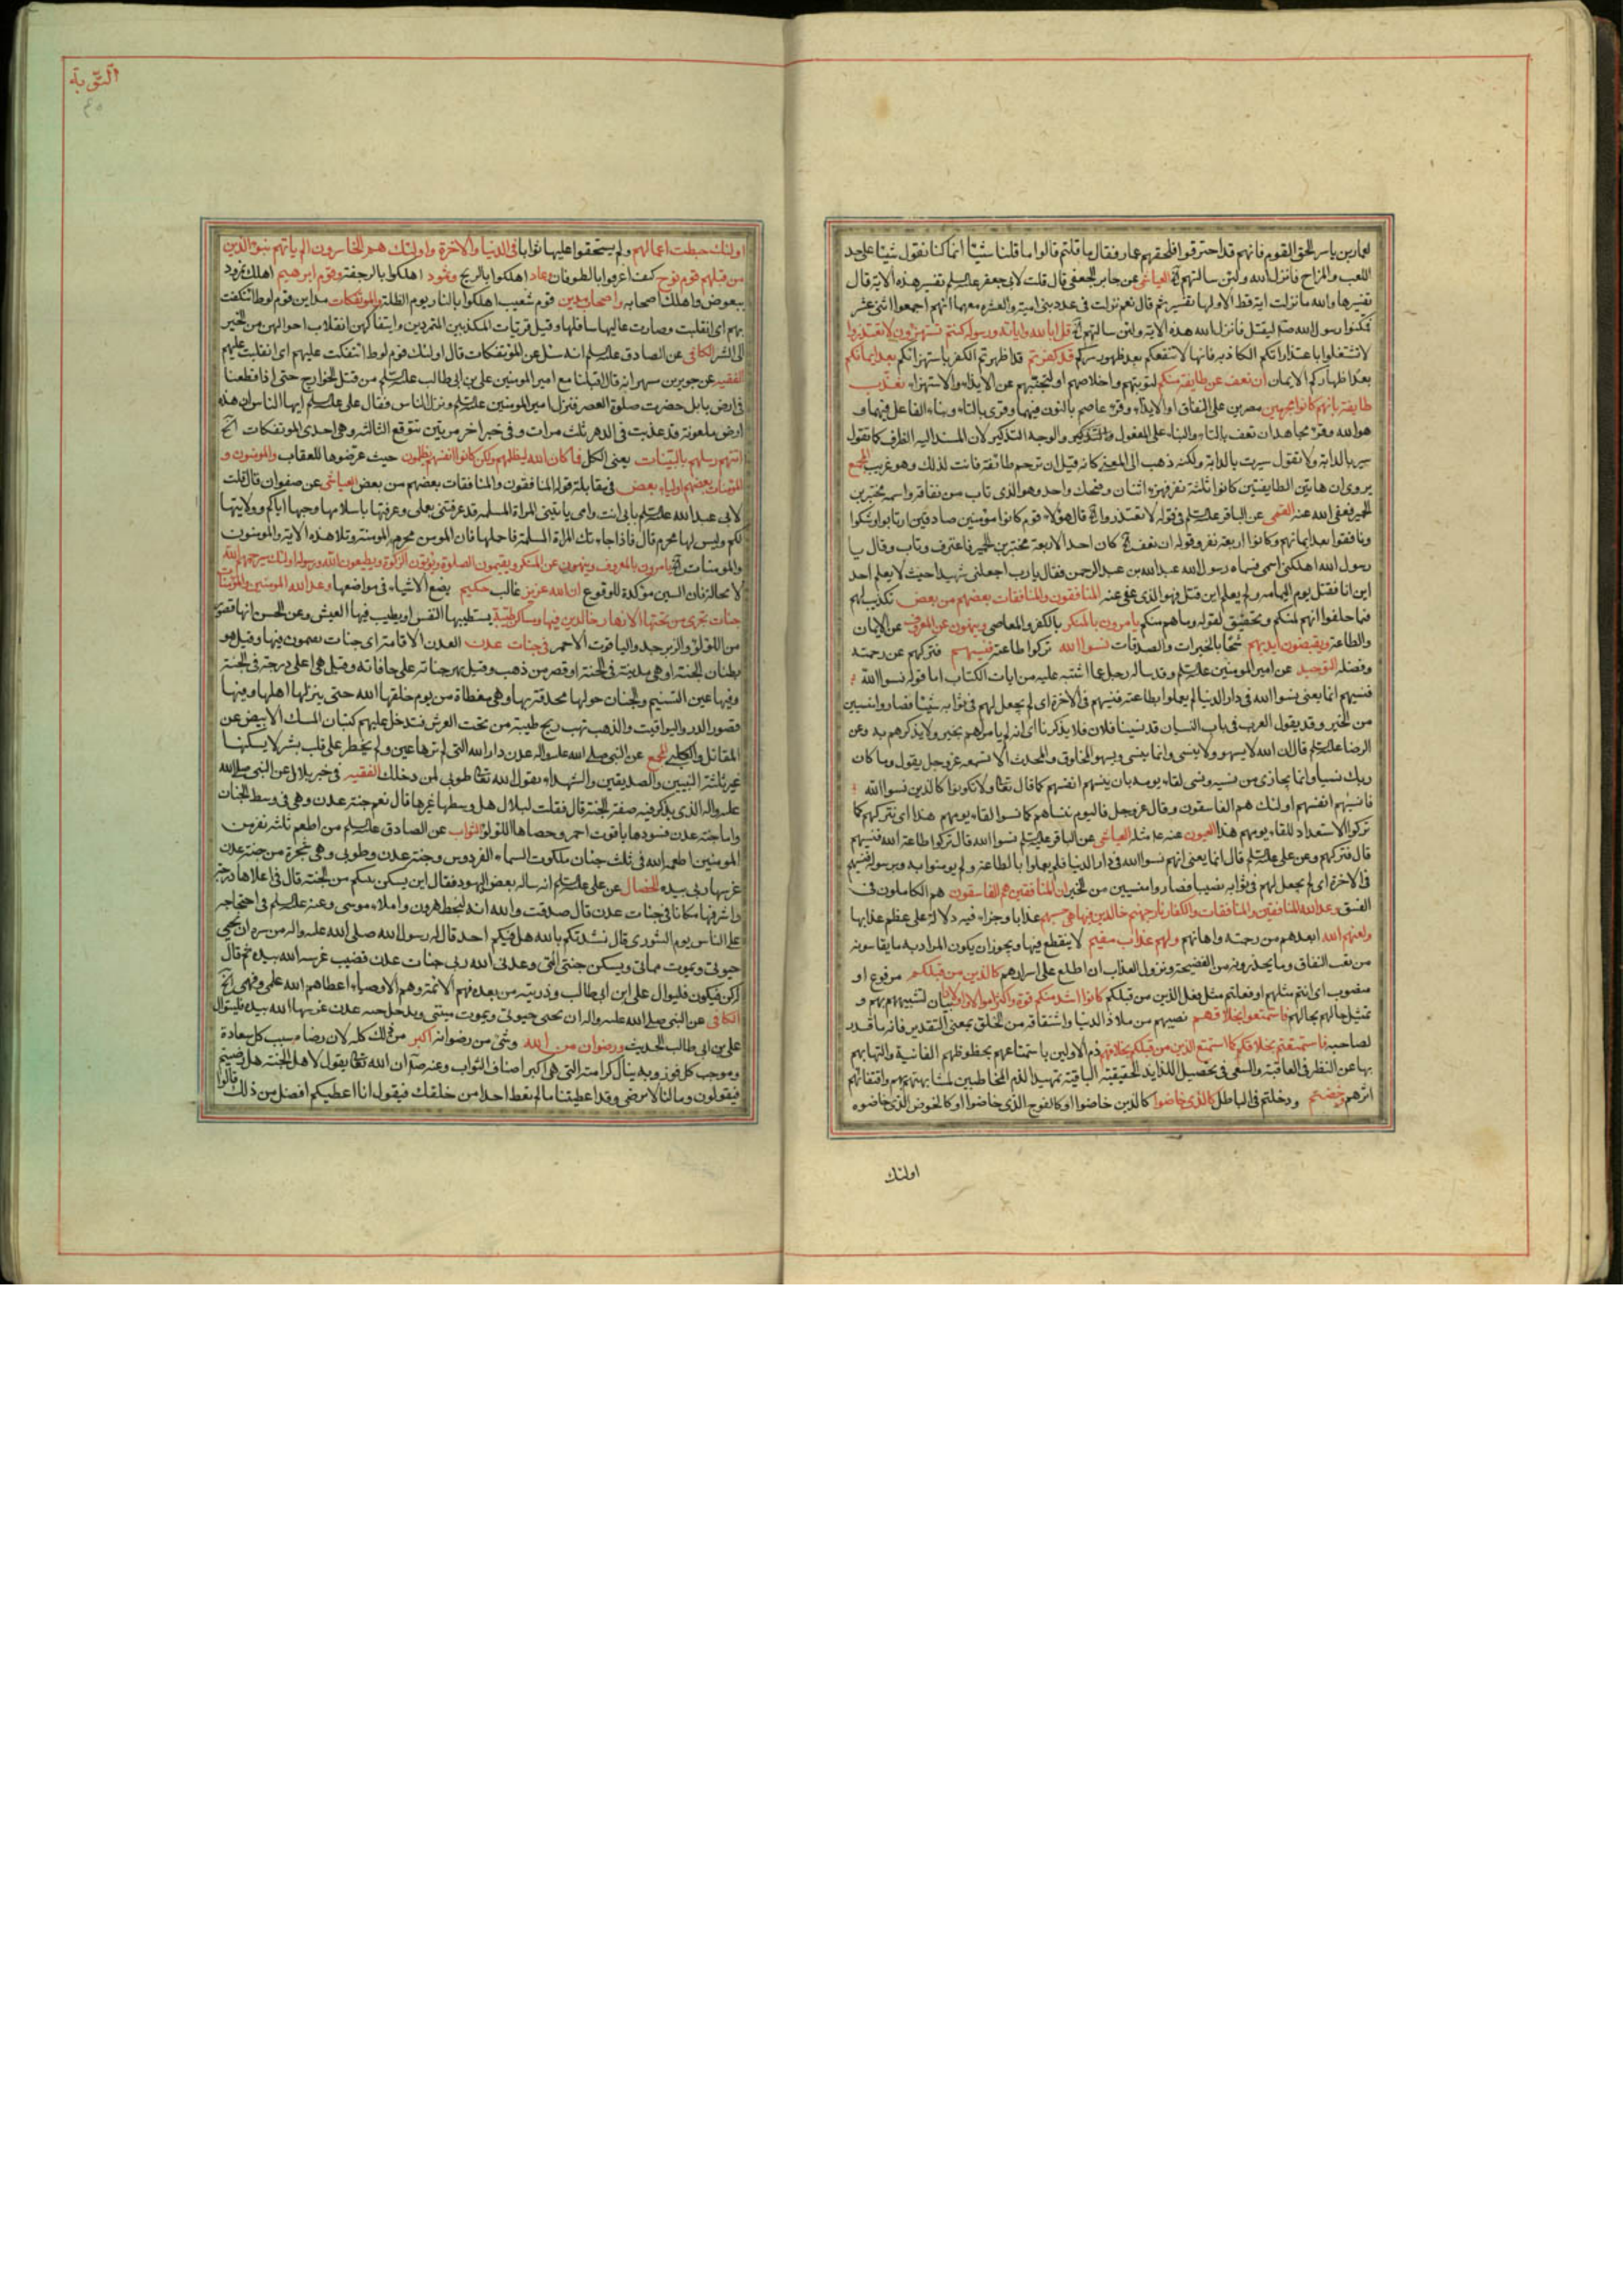 لعمار بن ياسر الحق القوم فانهم قد احترقوا فلحقهم عمار فقال ما قلتم قالوا ما قلنا شيئا انما كنا نقول شيئا على حد
اللعب والمزاح فانزل الله ولئن سالتهم الخ العياشي عن جابر الجعفي قال قلت لابي جعفر عليه السلم تفسير هذه الاية قال
تفسيرها والله ما نزلت اية قط الا ولها تفسير ثم قال نعم نزلت في عدد بني امية والعشرة معهما انهم اجمعوا اثني عشر
فكمنوا لرسول الله ص ليقتل فانزل الله هذه الاية ولئن سالتهم الخ قل ابالله واياته ورسوله كنتم تستهزؤن لا تعتذروا
لا تشتغلوا باعتذاراتكم الكاذبة فانها لا تنفعكم بعد ظهور سركم قد كفرتم قد اظهرتم الكفر باستهزائكم بعد ايمانكم
بعد اظهاركم الايمان ان نعف عن طايفة منكم لتوبتهم واخلاصهم او لتجنبهم عن الايذاء والاستهزاء نعذب
طايفة بانهم كانوا مجرمين مصرين على النفاق او الايذاء وقرء عاصم بالنون فيهما وقرى بالتاء وبناء الفاعل فيهما و
هو الله وقرء مجاهد ان تعف بالتاء والبناء على المفعول والتذكير والوجه التذكير لان المسند اليه الظرف كما تقول
سير بالدابة ولا تقول سيرت بالدابة ولكنه ذهب الى المعنى كانه قيل ان ترحم طائفة فانث لذلك وهو غريب المجمع
يروى ان هاتين الطايفتين كانوا ثلثة نفر فهزء اثنان وضحك واحد وهو الذي تاب من نفاقه واسمه مختبر بن
الحمير فعفى الله عنه القمي عن الباقر عليه السلم في قوله لا تعتذروا الخ قال هؤلاء قوم كانوا مؤمنين صادقين ارتابوا وشكوا
ونافقوا بعد ايمانهم وكانوا اربعة نفر وقوله ان نعف الخ كان احد الاربعة مختبر بن الحمير فاعترف وتاب وقال يا
رسول الله اهلكني اسمي فسماه رسول الله عبد الله بن عبد الرحمن فقال يا رب اجعلني شهيدا حيث لا يعلم احد
اين انا فقتل يوم اليمامه ولم يعلم اين قتل فهو الذي عفى عنه المنافقون والمنافقات بعضهم من بعض تكذيب لهم
فيما حلفوا انهم لمنكم وتحقيق لقوله وما هم منكم يامرون بالمنكر بالكفر والمعاصي وينهون عن المعروف عن الايمان
والطاعة ويقبضون ايديهم شحا بالخيرات والصدقات نسوا الله تركوا طاعته فنسيهم فتركهم عن رحمته
وفضله التوحيد عن امير المومنين عليه السلم وقد ساله رجل عما اشتبه عليه من ايات الكتاب اما قوله نسوا الله
فنسيهم انما يعني نسوا الله في دار الدنيا لم يعملوا بطاعته فنسيهم في الاخرة اي لم يجعل لهم في ثوابه شيئا فصاروا منسيين
من الخير وقد يقول العرب في باب النسيان قد نسينا فلان فلا يذكرنا اي انه لم يامر لهم بخير ولا يذكرهم به وعن
الرضا عليه السلم قال ان الله لا يسهو ولا ينسى وانما ينسى ويسهو المخلوق والمحدث الا تسمعه عز وجل يقول وما كان
ربك نسيا وانما يجازي من نسيه ونسي لقاء يومه بان ينسيهم انفسهم كما قال تعالى ولا تكونوا كالذين نسوا الله
فانسيهم انفسهم اولئك هم الفاسقون وقال عز وجل فاليوم ننساهم كما نسوا لقاء يومهم هذا اي نتركهم كما
تركوا الاستعداد للقاء يومهم هذا العيون عنه ع مثله العياشي عن الباقر عليه السلم نسوا الله قال تركوا طاعة الله فنسيهم
قال فتركهم وعن علي عليه السلم قال انما يعني انهم نسوا الله في دار الدنيا فلم يعملوا بالطاعة ولم يومنوا به وبرسوله فنسيهم
في الاخرة اي لم يجعل لهم في ثوابه نصيبا فصاروا منسيين من الخير ان المنافقين هم الفاسقون هم الكاملون في
الفسق وعد الله المنافقين والمنافقات والكفار نار جهنم خالدين فيها هي حسبهم عذابا وجزاء فيه دلالة على عظم عذابها
ولعنهم الله ابعدهم من رحمته واهانهم ولهم عذاب مقيم لا ينقطع فيها ويجوز ان يكون المراد به ما يقاسونه
من تعب النفاق وما يحذرونه من الفضيحة ونزول العذاب ان اطلع على اسرارهم كالذين من قبلكم مرفوع او
منصوب اي انتم مثلهم او فعلتم مثل فعل الذين من قبلكم كانوا اشد منكم قوة واكثر اموالا واولادا بيان لتشبيههم بهم و
تمثيل حالهم بحالهم فاستمتعوا بخلاقهم نصيبهم من ملاذ الدنيا واشتقاقه من الخلق بمعنى التقدير فانه ما قدر
لصاحبه فاستمتعتم بخلاقكم كما استمتع الذين من قبلكم بخلاقهم ذم الاولين باستمتاعهم بحظوظهم الفانية والتهائهم
بها عن النظر في العاقبة والسعي في تحصيل اللذايذ الحقيقية الباقية تمهيدا لذم المخاطبين لمشابهتهم بهم واقتفائهم
اثرهم وخضتم ودخلتم في الباطل كالذي خاضوا كالذين خاضوا او كالفوج الذي خاضوا او كالخوض الذي خاضوه
اولئك
التوبة
اولئك حبطت اعمالهم ولم يستحقوا عليها ثوابا في الدنيا والاخرة واولئك هم الخاسرون الم ياتهم نبؤ الذين
من قبلهم قوم نوح كيف اغرقوا بالطوفان وعاد اهلكوا بالريح وثمود اهلكوا بالرجفة وقوم ابرهيم اهلك نمرود
ببعوض واهلك اصحابه واصحاب مدين قوم شعيب اهلكوا بالنار يوم الظلة والموتفكات مداين قوم لوط ائتفكت
بهم اي انقلبت وصارت عاليها سافلها وقيل قريات المكذبين المتمردين وايتفاكهن انقلاب احوالهن من الخير
الى الشر الكافي عن الصادق عليه السلم انه سئل عن الموتفكات قال اولئك قوم لوط ائتفكت عليهم اي انقلبت عليهم
الفقيه عن جويرية بن مسهر انه قال اقبلنا مع امير المومنين علي بن ابي طالب عليه السلم من قتل الخوارج حتى اذا قطعنا
في ارض بابل حضرت صلوة العصر فنزل امير المومنين عليه السلم ونزل الناس فقال علي عليه السلم ايها الناس ان هذه
ارض ملعونة قد عذبت في الدهر ثلث مرات وفي خبر اخر مرتين تتوقع الثالثة وهي احدى الموتفكات الخ
اتتهم رسلهم بالبينات يعني الكل فما كان الله ليظلمهم ولكن كانوا انفسهم يظلمون حيث عرضوها للعقاب والمومنون و
المؤمنات بعضهم اولياء بعض في مقابلة قوله المنافقون والمنافقات بعضهم من بعض العياشي عن صفوان قال قلت
لابي عبد الله عليه السلم بابي انت وامي ياتيني المراة المسلمة قد عرفتني بعملي وعرفتها باسلامها وحبها اياكم وولايتها
لكم وليس لها محرم قال فاذا جاءتك المراة المسلمة فاحملها فان المومن محرم المومنة وتلا هذه الاية والمومنون
والمومنات الخ يامرون بالمعروف وينهون عن المنكر ويقيمون الصلوة ويؤتون الزكوة ويطيعون الله ورسوله اولئك سيرحمهم الله
لا محالة فان السين مؤكدة للوقوع ان الله عزيز غالب حكيم يضع الاشياء في مواضعها وعد الله المومنين والمؤمنات
جنات تجري من تحتها الانهار خالدين فيها ومساكن طيبة يستطيبها النفس او يطيب فيها العيش وعن الحسن انها قصور
من اللؤلؤ والزبرجد والياقوت الاحمر في جنات عدن العدن الاقامة اي جنات يقيمون فيها وقيل هو
بطنان الجنة او هي مدينة في الجنة او قصر من ذهب وقيل نهر جناته على حافاته وقيل هي اعلى درجة في الجنة
وفيها عين التسنيم والجنان حولها محدقة بها وهي مغطاة من يوم خلقها الله حتى ينزلها اهلها وفيها
قصور الدر واليواقيت والذهب تهب ريح طيبة من تحت العرش فتدخل عليهم كثبان المسك الابيض عن
المقاتل والكلبي المجمع عن النبي صلى الله عليه واله عدن دار الله التي لم ترها عين ولم يخطر على قلب بشر لا يسكنها
غير ثلثة النبيين والصديقين والشهداء يقول الله تعالى طوبى لمن دخلك الفقيه في خبر بلال عن النبي صلى الله
عليه واله الذي يذكر فيه صفة الجنة قال فقلت لبلال هل وسطها غيرها قال نعم جنة عدن وهي في وسط الجنان
واما جنة عدن فسورها ياقوت احمر وحصاها اللؤلؤ الثواب عن الصادق عليه السلم من اطعم ثلثة نفر من
المومنين اطعمه الله في ثلث جنان ملكوت السماء الفردوس وجنة عدن وطوبى وهي شجرة من جنة عدن
غرسها ربي بيده الخصال عن علي عليه السلم انه ساله بعض اليهود فقال اين يسكن نبيكم من الجنة قال في اعلاها درجة
واشرفها مكانا في جنات عدن قال صدقت والله انه لبخط هرون واملاء موسى وعنه عليه السلم في احتجاجه
على الناس يوم الشورى قال نشدتكم بالله هل فيكم احد قال له رسول الله صلى الله عليه واله من سره ان يحيى
حيوتي ويموت مماتي ويسكن جنتي التي وعدني الله ربي جنات عدن قضيب غرسه الله بيده ثم قال
له كن فيكون فليوال علي ابن ابي طالب وذريته من بعده فهم الائمة وهم الاوصياء اعطاهم الله علمي وفهمي الخ
الكافي عن النبي صلى الله عليه واله ان يحيى حيوتي ويموت ميتتي ويدخل جنة عدن غرسها الله بيده فليتوال
علي بن ابي طالب الحديث ورضوان من الله وشيء من رضوانه اكبر من ذلك كله لان رضاه سبب كل سعادة
وموجب كل فوز وبه ينال كرامته التي هي اكبر اصناف الثواب وعنه ص ان الله تعالى يقول لاهل الجنة هل رضيتم
فيقولون وما لنا لا نرضى وقد اعطيتنا ما لم تعط احدا من خلقك فيقول انا اعطيكم افضل من ذلك قالوا